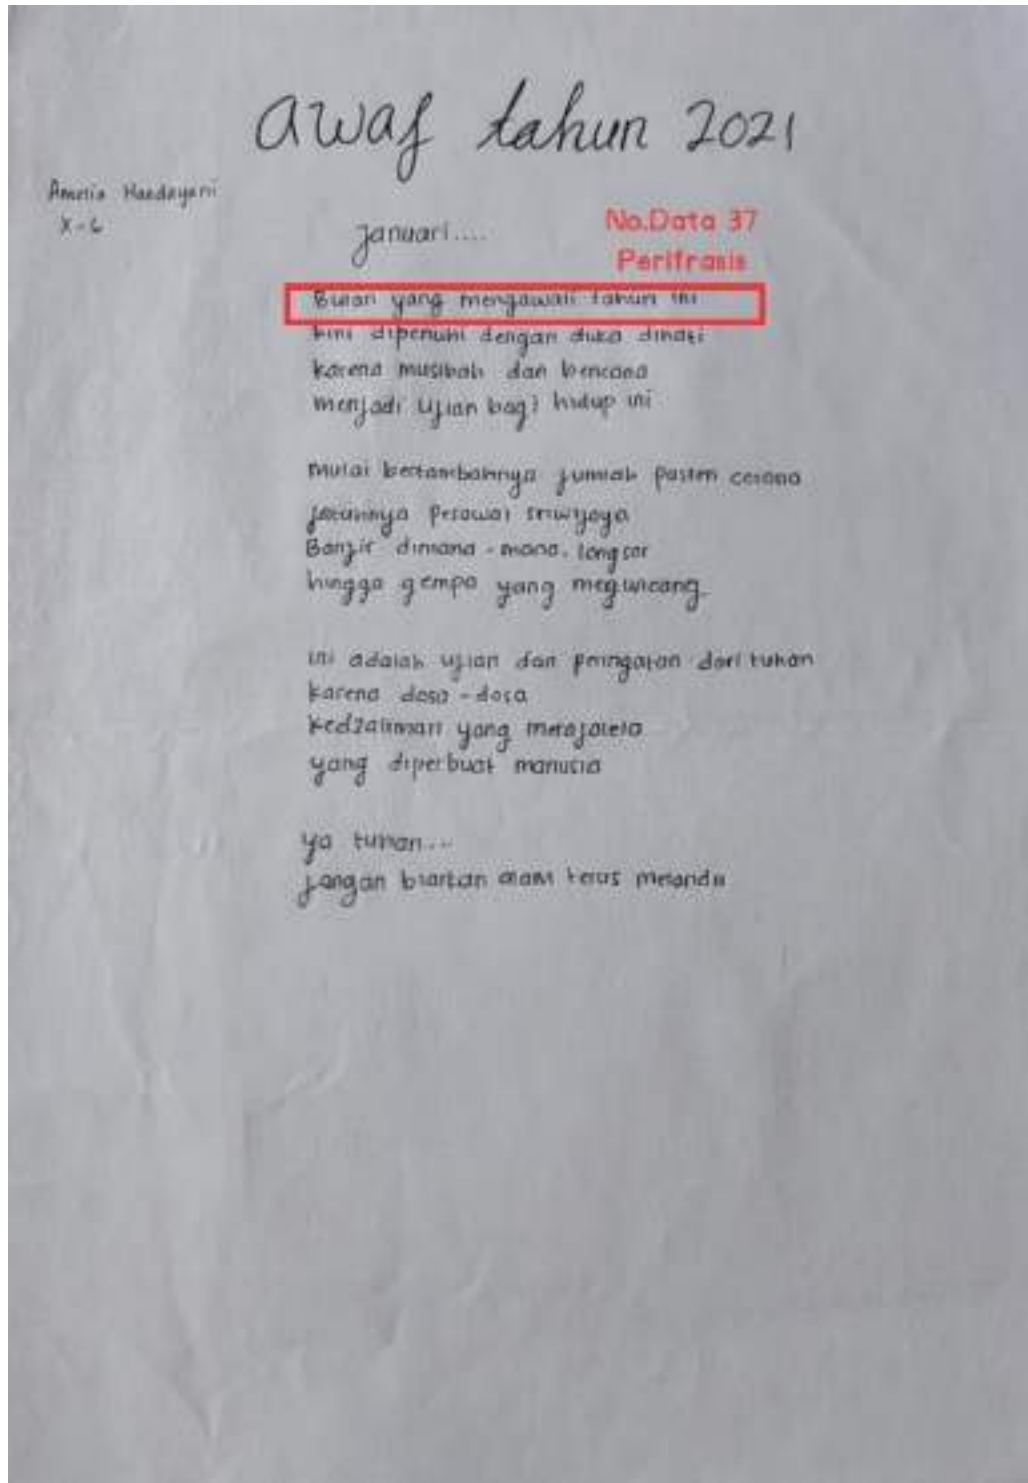 awal tahun 2021
Amelia Handayani
X-6
januari....
No.Data 37
Perifrasis
Bulan yang mengawali tahun ini
kini dipenuhi dengan duka dihati
karena musibah dan bencana
menjadi ujian bagi hidup ini
mulai bertambahnya jumlah pasien corona
jatuhnya pesawat sriwijaya
Banjir dimana-mana, longsor
hingga gempa yang meguncang
ini adalah ujian dan peringatan dari tuhan
karena dosa-dosa
kedzaliman yang merajalela
yang diperbuat manusia
ya tuhan...
jangan biarkan alam terus